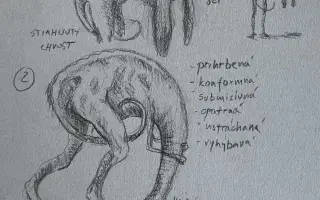 STIAHNUTÝ
CHVOST
2
- prihrbená
- konformná
- submisívna
- opatrná
- ustráchaná
- vyhýbavá